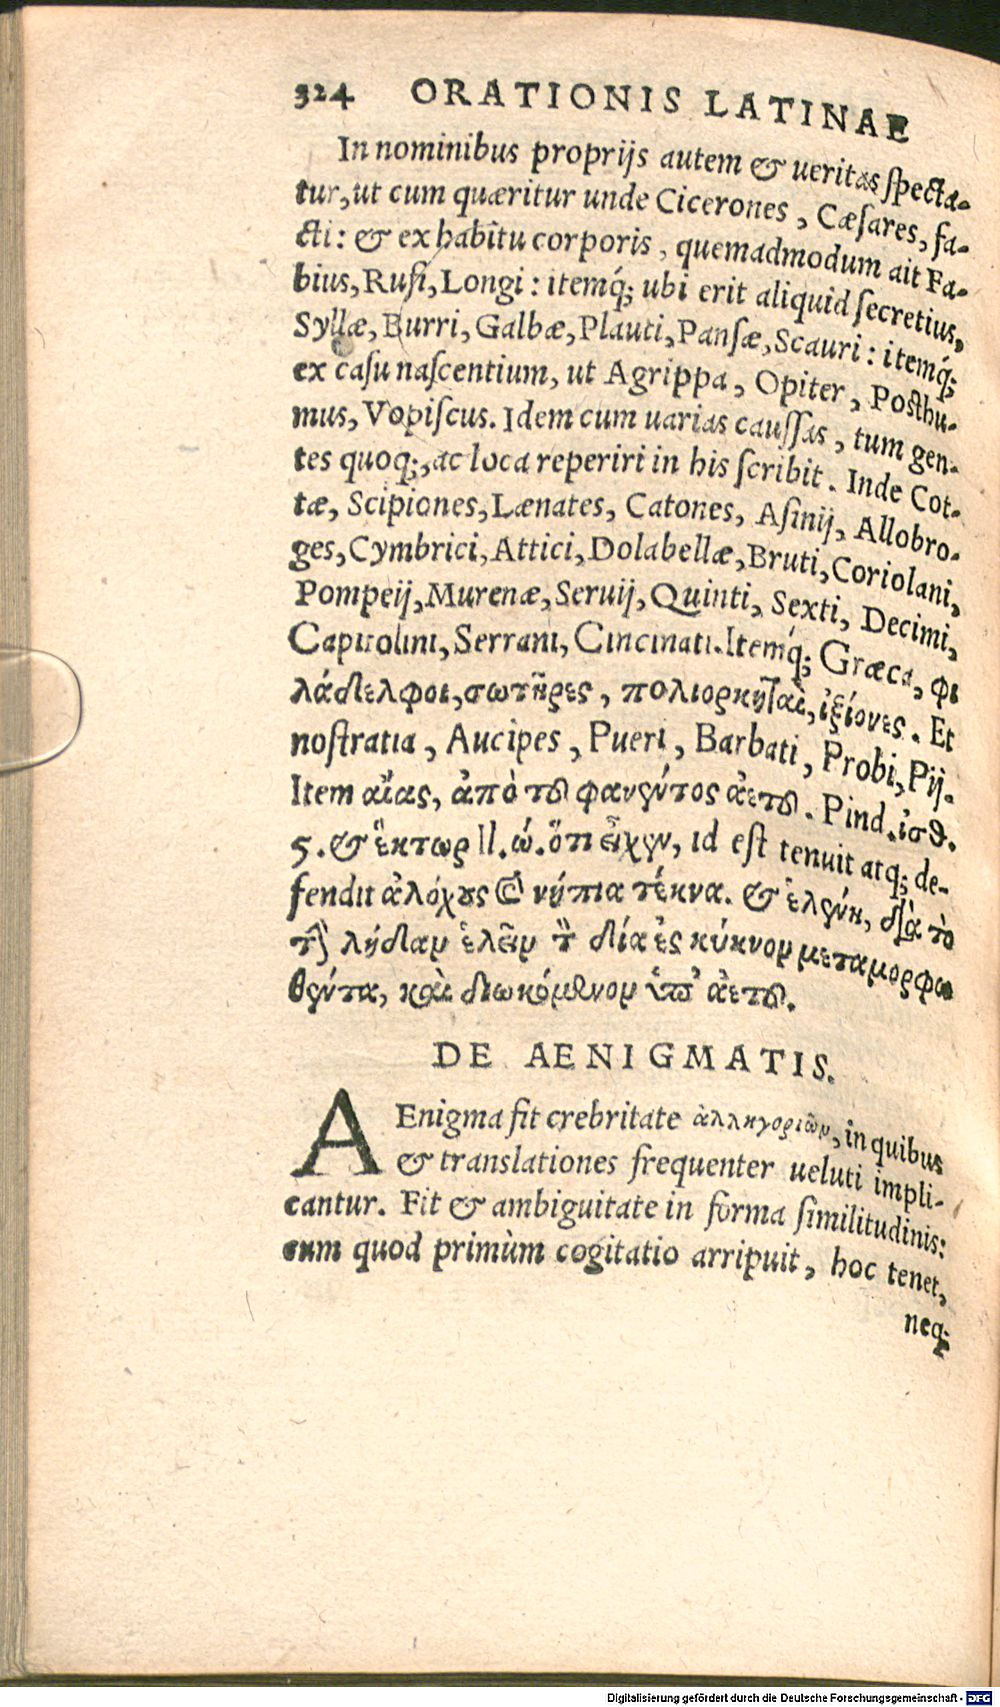 324 ORATIONIS LATINAE
In nominibus proprijs autem & ueritas specta-
tur, ut cum quæritur unde Cicerones, Cæsares, fa-
cti: & ex habitu corporis, quemadmodum ait Fa-
bius, Rufi, Longi: itemq́; ubi erit aliquid secretius,
Syllæ, Burri, Galbæ, Plauti, Pansæ, Scauri: itemq́;
ex casu nascentium, ut Agrippa, Opiter, Posthu-
mus, Vopiscus. Idem cum uarias caussas, tum gen-
tes quoq;, ac loca reperiri in his scribit. Inde Cot-
tæ, Scipiones, Lænates, Catones, Asinij, Allobro-
ges, Cymbrici, Attici, Dolabellæ, Bruti, Coriolani,
Pompeij, Murenæ, Seruij, Quinti, Sexti, Decimi,
Capitolini, Serrani, Cincinati. Itemq́; Græca, φι
λάδελφοι, σωτῆρες, πολιορκηταὶ, ἰξίονες. Et
nostratia, Aucipes, Pueri, Barbati, Probi, Pij.
Item αἴας, ἀπὸ τοῦ φανέντος ἀετοῦ. Pind. ἰσθ.
5. & ἕκτωρ Il. ώ. ὅτι εἶχεν, id est tenuit atq; de-
fendit ἀλόχους καὶ νήπια τέκνα. & ἑλένη, διὰ τὸ
τὴν λήδαν ἑλεῖν τὸν δία ἐς κύκνον μεταμορφω
θέντα, καὶ διωκόμενον ὑπ' ἀετοῦ.
DE AENIGMATIS.
AEnigma fit crebritate ἀλληγοριῶν, in quibus
& translationes frequenter ueluti impli-
cantur. Fit & ambiguitate in forma similitudinis:
cum quod primùm cogitatio arripuit, hoc tenet,
neq;
Digitalisierung gefördert durch die Deutsche Forschungsgemeinschaft - DFG